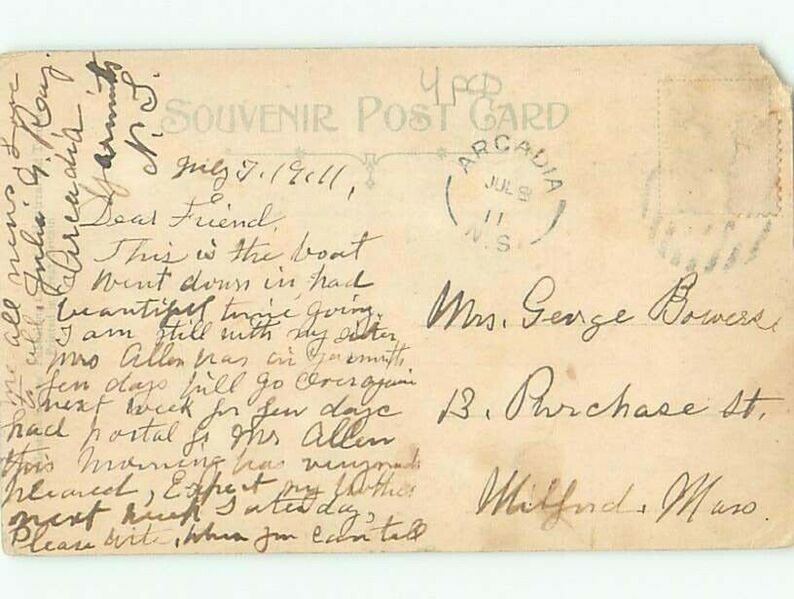 4 PCD
SOUVENIR POST CARD
ARCADIA
JUL 8
11
N.S.
July 7. 1911,
Dear Friend,
This is the boat
I went down in, had
beautiful time going.
I am still with my sister
Mrs Allen was in Yarmouth
few days will go over again
next week for few days
had postal fr Mrs Allen
this morning was very much
pleased, Expect my brother
next week Saturday,
Please write, when you can tell
me all news. Love
to all. Julia G. Ray.
Arcadia
Yarmouth
N.S.
Mrs. George Bowers,
13. Purchase St.
Milford, Mass.